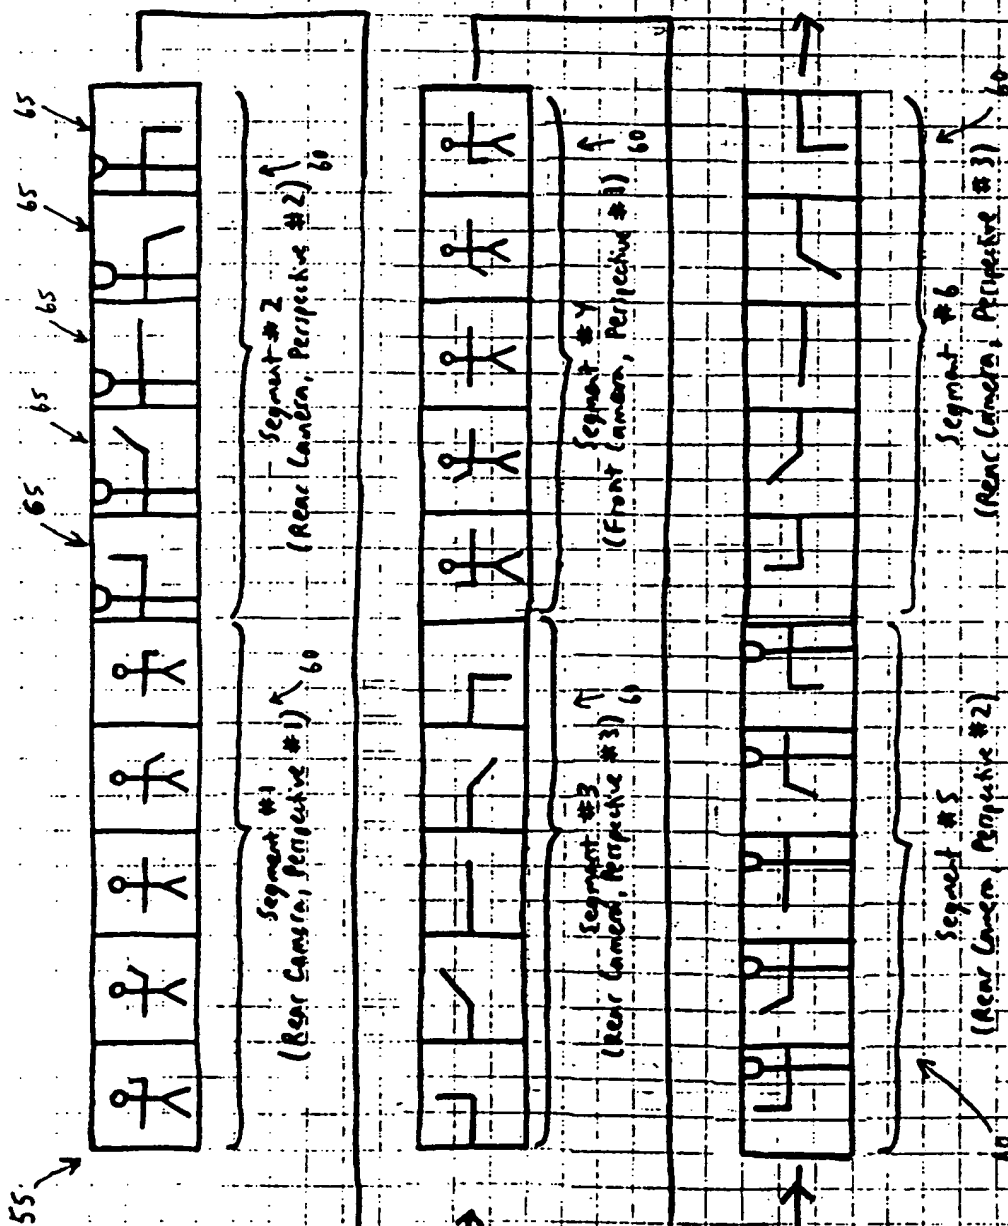 55
65
65
65
65
65
Segment #1
(Rear Camera, Perspective #1)
60
Segment #2
(Rear Camera, Perspective #2)
60
Segment #3
(Rear Camera, Perspective #3)
60
Segment #4
(Front Camera, Perspective #1)
60
Segment #5
(Rear Camera, Perspective #2)
60
Segment #6
(Rear Camera, Perspective #3)
60